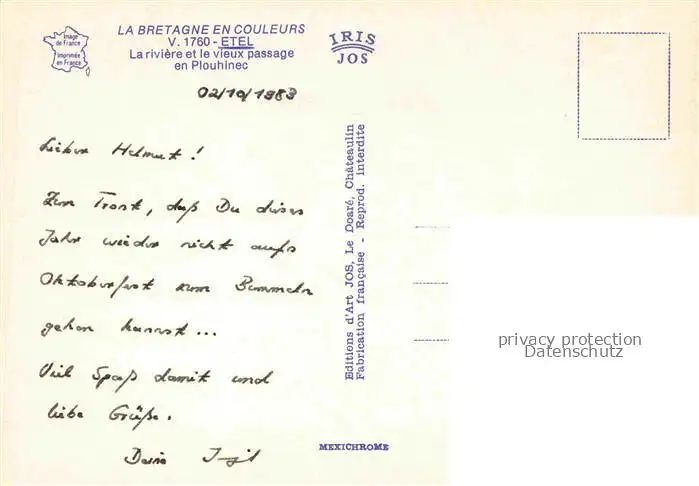 Image
de France
Imprimée
en France
LA BRETAGNE EN COULEURS
V. 1760 - ETEL
La rivière et le vieux passage
en Plouhinec
IRIS
JOS
02/10/1983
Lieber Helmut!
Zum Trost, daß Du dieses
Jahr wieder nicht aufs
Oktoberfest zum Bummeln
gehen kannst...
Viel Spaß damit und
liebe Grüße.
Editions d'Art JOS, Le Doaré, Châteaulin
Fabrication française - Reprod. interdite
MEXICHROME
privacy protection
Datenschutz